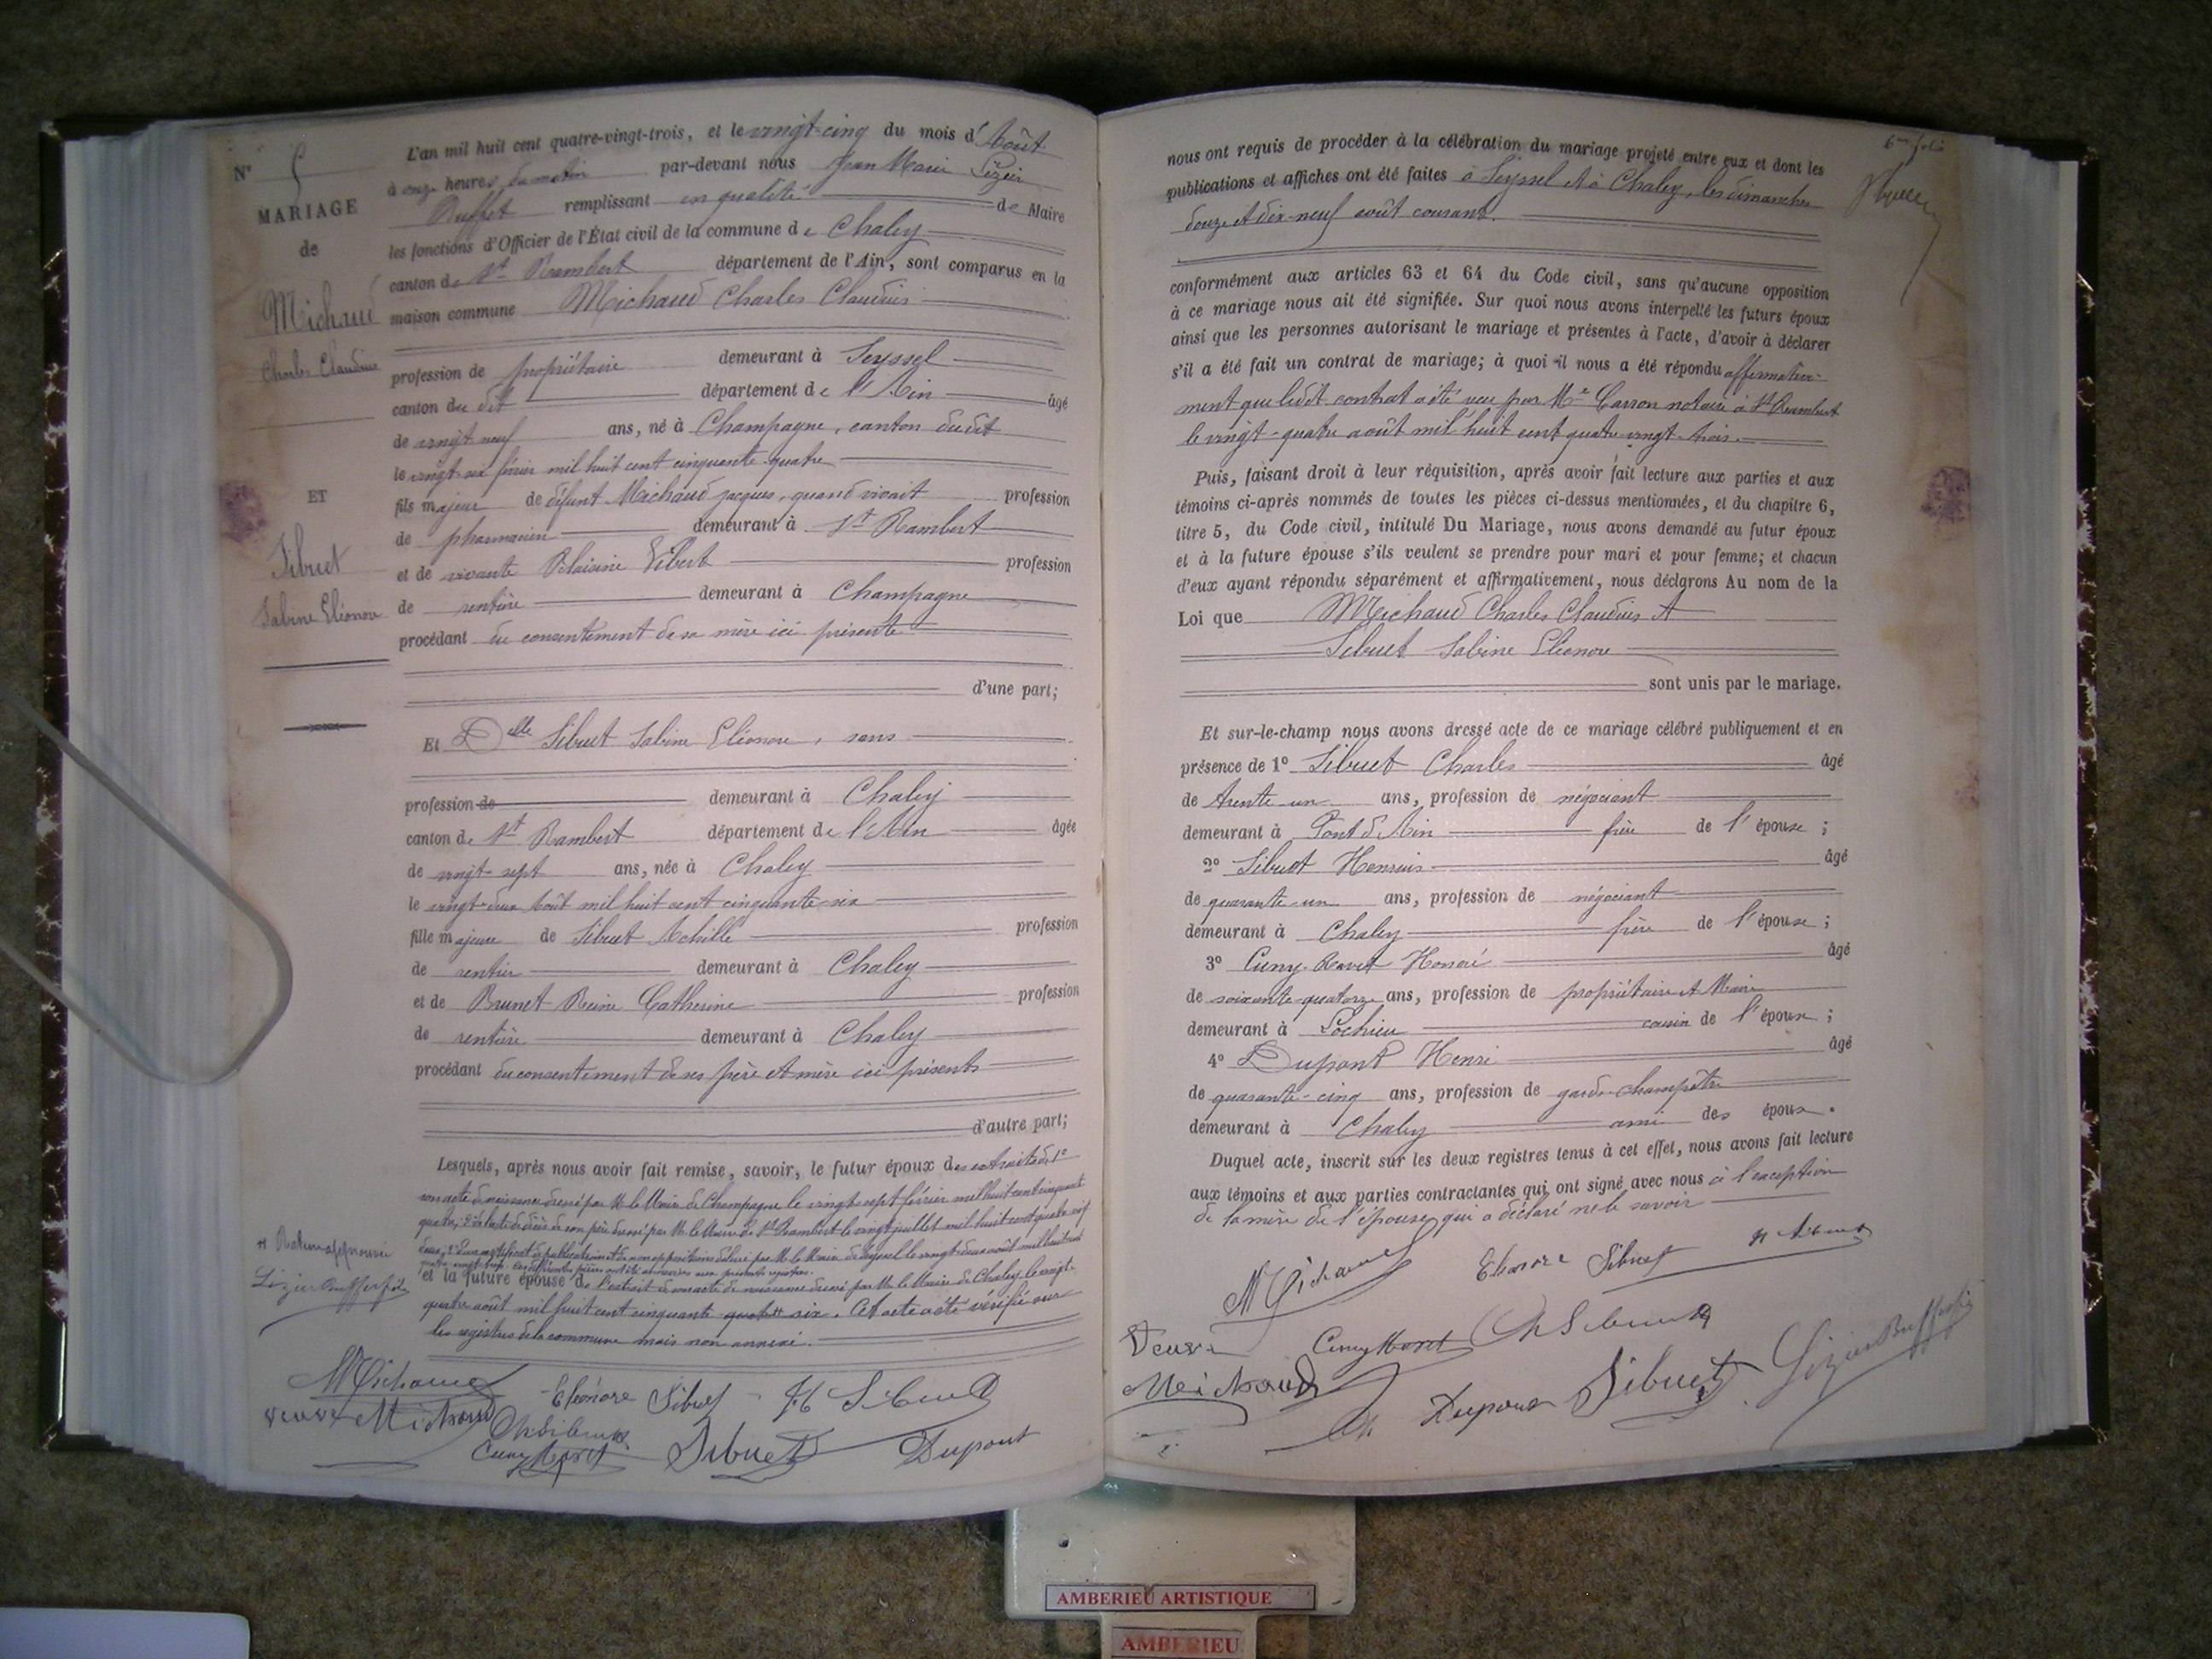 N° 5
MARIAGE
de
Michaud
Charles Claudius
ET
Sibuet
Sabine Eléonore
L'an mil huit cent quatre-vingt-trois, et le vingt-cinq du mois d'Août
à onze heures du matin par-devant nous Jean Marie Lizier
Buffet remplissant en qualité de Maire
les fonctions d'Officier de l'État civil de la commune de Chaley
canton de St Rambert département de l'Ain, sont comparus en la
maison commune Michaud Charles Claudius
profession de propriétaire demeurant à Seyssel
canton du dit département de l'Ain âgé
de vingt neuf ans, né à Champagne, canton dudit
le vingt-six février mil huit cent cinquante-quatre
fils majeur de défunt Michaud Jacques, quand vivait profession
de pharmacien demeurant à St Rambert
et de vivante Vibert profession
de rentière demeurant à Champagne
procédant du consentement de sa mère ici présente
d'une part;
Et Delle Sibuet Sabine Eléonore, sans
profession de demeurant à Chaley
canton de St Rambert département de l'Ain âgée
de vingt-sept ans, née à Chaley
le vingt-deux Août mil huit cent cinquante-six
fille majeure de Sibuet Achille profession
de rentier demeurant à Chaley
et de Brunet Reine Catherine profession
de rentière demeurant à Chaley
procédant du consentement de ses père et mère ici présents
d'autre part;
Lesquels, après nous avoir fait remise, savoir, le futur époux des extraits de 1°
son acte de naissance dressé par M. le Maire de Champagne le vingt-sept février mil huit cent cinquante
quatre, 2° de l'acte de décès de son père dressé par M. le Maire de St Rambert le vingt juillet mil huit cent quatre vingt
deux, 3° d'un certificat de publications et de non opposition délivré par M. le Maire de Seyssel le vingt-deux août mil huit cent
quatre vingt trois. Les différentes pièces ont été annexées aux présents registres.
et la future épouse de l'extrait de son acte de naissance dressé par M. le Maire de Chaley le vingt-
quatre août mil huit cent cinquante six. Cet acte a été vérifié sur
les registres de la commune mais non annexé.
Rature approuvée
Lizier Buffet
Michaud
Eléonore Sibuet
H Sibuet
veuve Michaud
Ch Sibuet
Cuny Ravet
Sibuet
Dupont
6me folio
nous ont requis de procéder à la célébration du mariage projeté entre eux et dont les
publications et affiches ont été faites à Seyssel et à Chaley, les dimanches
douze et dix-neuf août courant.
conformément aux articles 63 et 64 du Code civil, sans qu'aucune opposition
à ce mariage nous ait été signifiée. Sur quoi nous avons interpellé les futurs époux
ainsi que les personnes autorisant le mariage et présentes à l'acte, d'avoir à déclarer
s'il a été fait un contrat de mariage; à quoi il nous a été répondu affirmative-
ment que ledit contrat a été reçu par Me Carron notaire à St Rambert
le vingt-quatre août mil huit cent quatre-vingt-trois.
Puis, faisant droit à leur réquisition, après avoir fait lecture aux parties et aux
témoins ci-après nommés de toutes les pièces ci-dessus mentionnées, et du chapitre 6,
titre 5, du Code civil, intitulé Du Mariage, nous avons demandé au futur époux
et à la future épouse s'ils veulent se prendre pour mari et pour femme; et chacun
d'eux ayant répondu séparément et affirmativement, nous déclarons Au nom de la
Loi que Michaud Charles Claudius et
Sibuet Sabine Eléonore
sont unis par le mariage.
Et sur-le-champ nous avons dressé acte de ce mariage célébré publiquement et en
présence de 1° Sibuet Charles âgé
de trente-un ans, profession de négociant
demeurant à Pont d'Ain frère de l'épouse;
2° Sibuet Honoré âgé
de quarante-un ans, profession de négociant
demeurant à Chaley frère de l'épouse;
3° Cuny-Ravet Honoré âgé
de soixante-quatorze ans, profession de propriétaire et Maire
demeurant à Lochieu cousin de l'épouse;
4° Dupont Henri âgé
de quarante-cinq ans, profession de garde-champêtre
demeurant à Chaley ami des époux.
Duquel acte, inscrit sur les deux registres tenus à cet effet, nous avons fait lecture
aux témoins et aux parties contractantes qui ont signé avec nous à l'exception
de la mère de l'épouse qui a déclaré ne le savoir
Michaud
Eléonore Sibuet
H Sibuet
Veuve
Michaud
Cuny Ravet
Ch Sibuet
Dupont
Sibuet
Lizier Buffet
AMBERIEU ARTISTIQUE
AMBERIEU